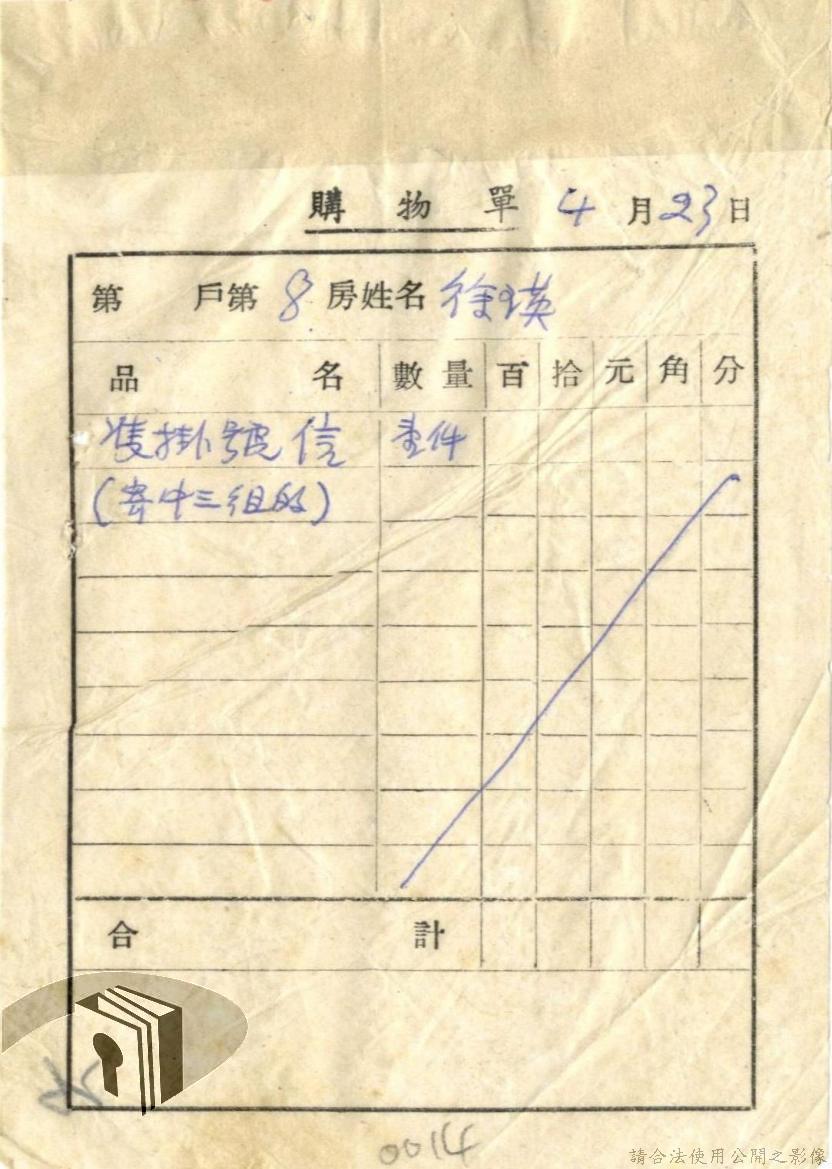 購物單 4月23日
第 戶第 8 房姓名 徐瑛
品名 數量 百 拾 元 角 分
雙掛號信 壹件
(寄中三組的)
合計
0014
請合法使用公開之影像